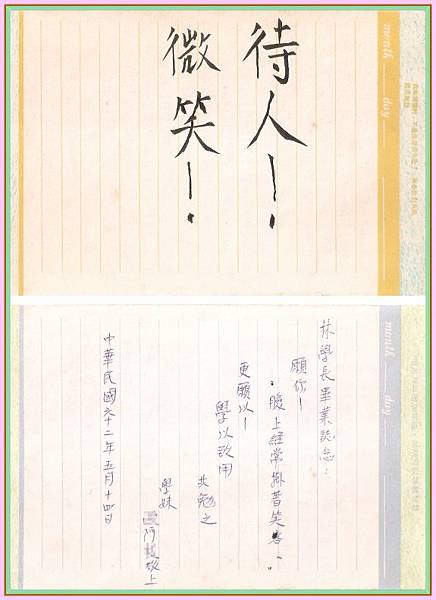 待人！
微笑！
month day
林學長畢業誌念：
願你！
臉上經常掛著笑容
更願以！
學以致用
共勉之
學妹
阿 敬上
中華民國六十二年五月十四日
month day